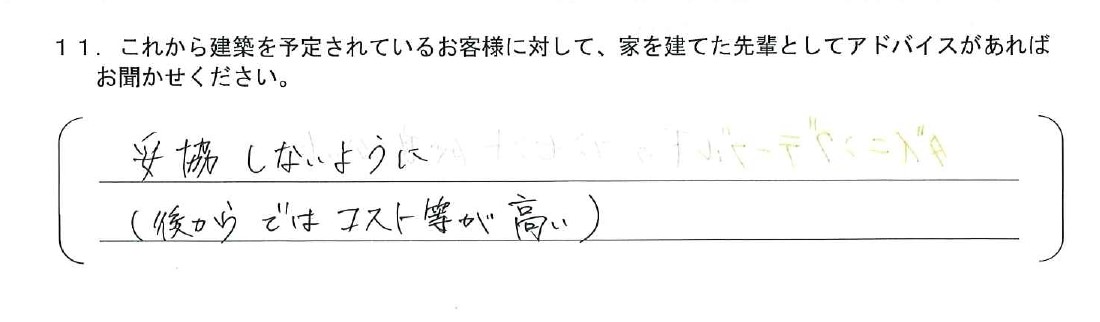 11．これから建築を予定されているお客様に対して、家を建てた先輩としてアドバイスがあれば
お聞かせください。
妥協しないように
(後からではコスト等が高い)